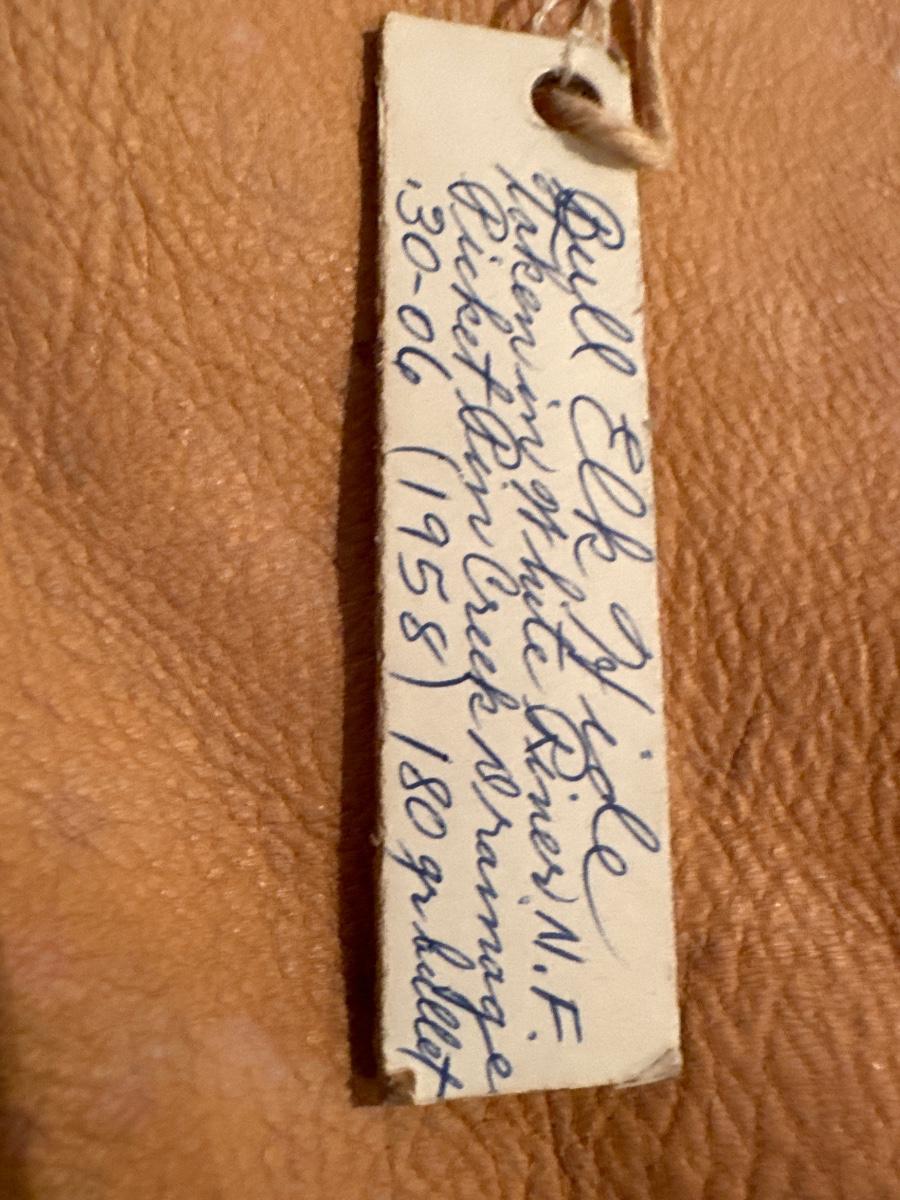 Bull Elk Hide
taken in White River N.F.
Picket Pin Creek drainage
.30-06 (1958) 180 gr bullet